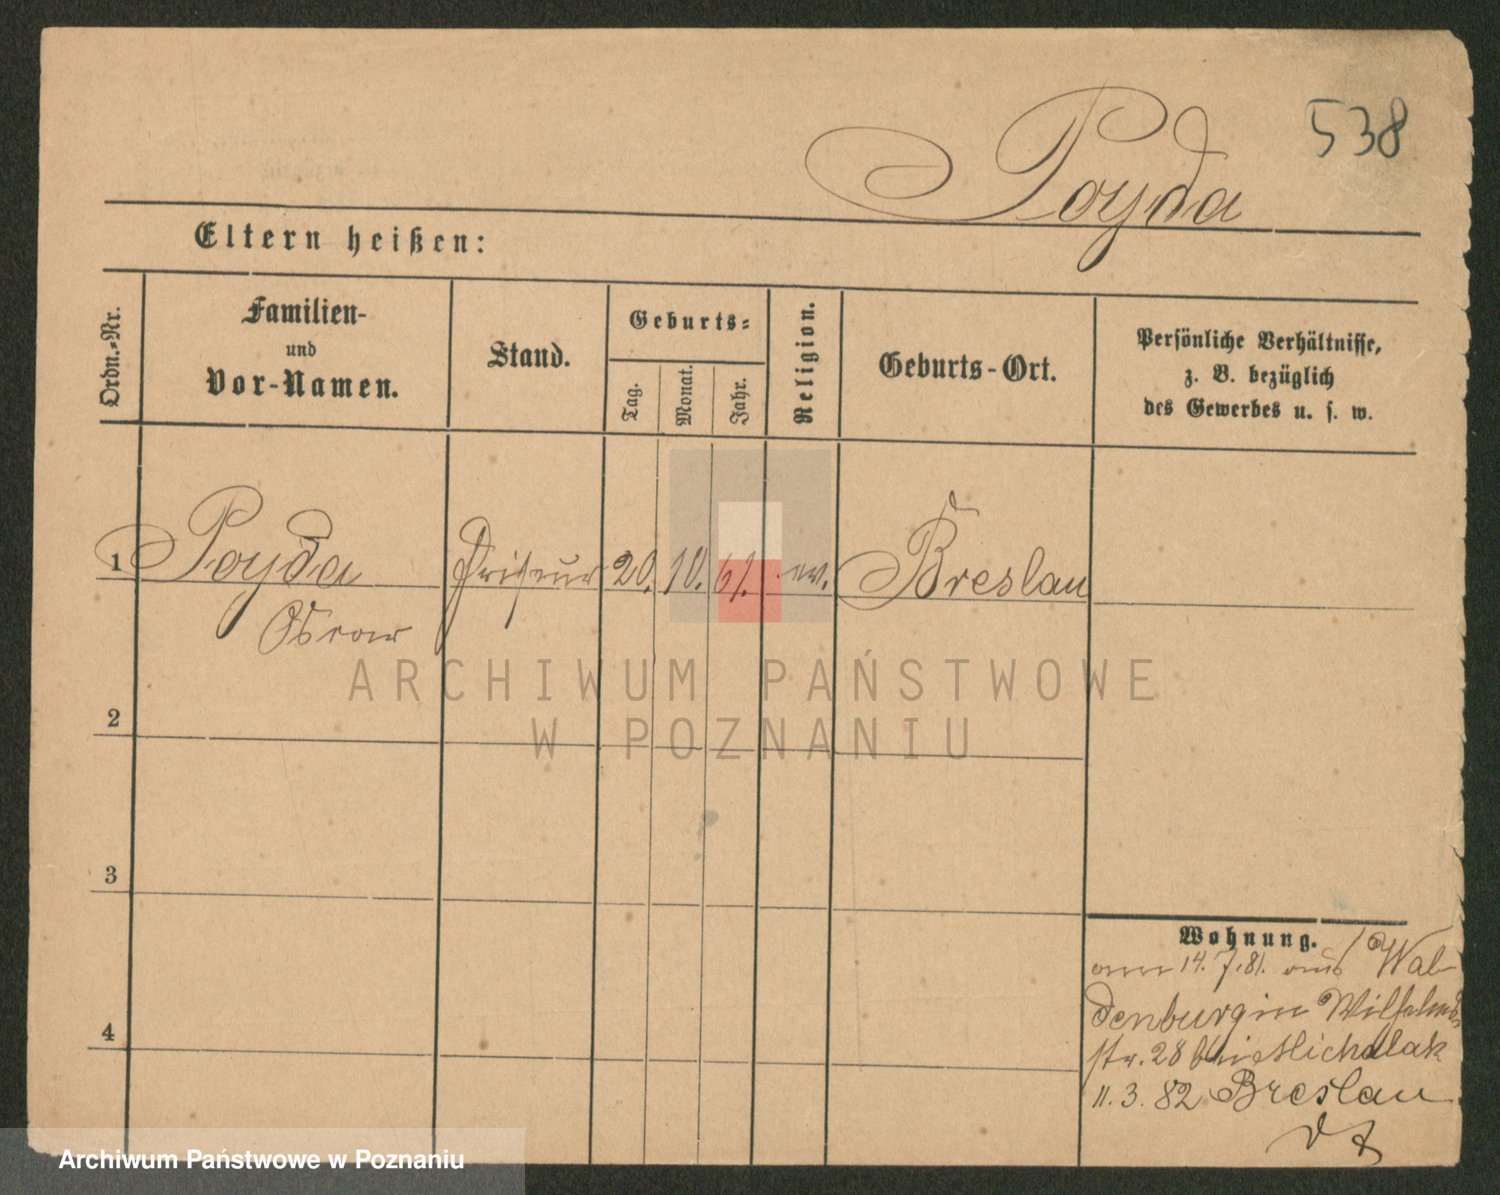 538
Poyda
Eltern heißen:
Ordn.-Nr.
Familien-
und
Vor-Namen.
Stand.
Geburts-
Tag.
Monat.
Jahr.
Religion.
Geburts-Ort.
Persönliche Verhältnisse,
z. B. bezüglich
des Gewerbes u. s. w.
1
Poyda
Friseur
20.
10.
61.
ev.
Breslau
Oscar
ARCHIWUM PAŃSTWOWE
W POZNANIU
2
3
4
Wohnung.
14. 7. 81. aus Wal-
denburg in Wilhelms
str. 28 b
11. 3. 82 Breslau
Archiwum Państwowe w Poznaniu